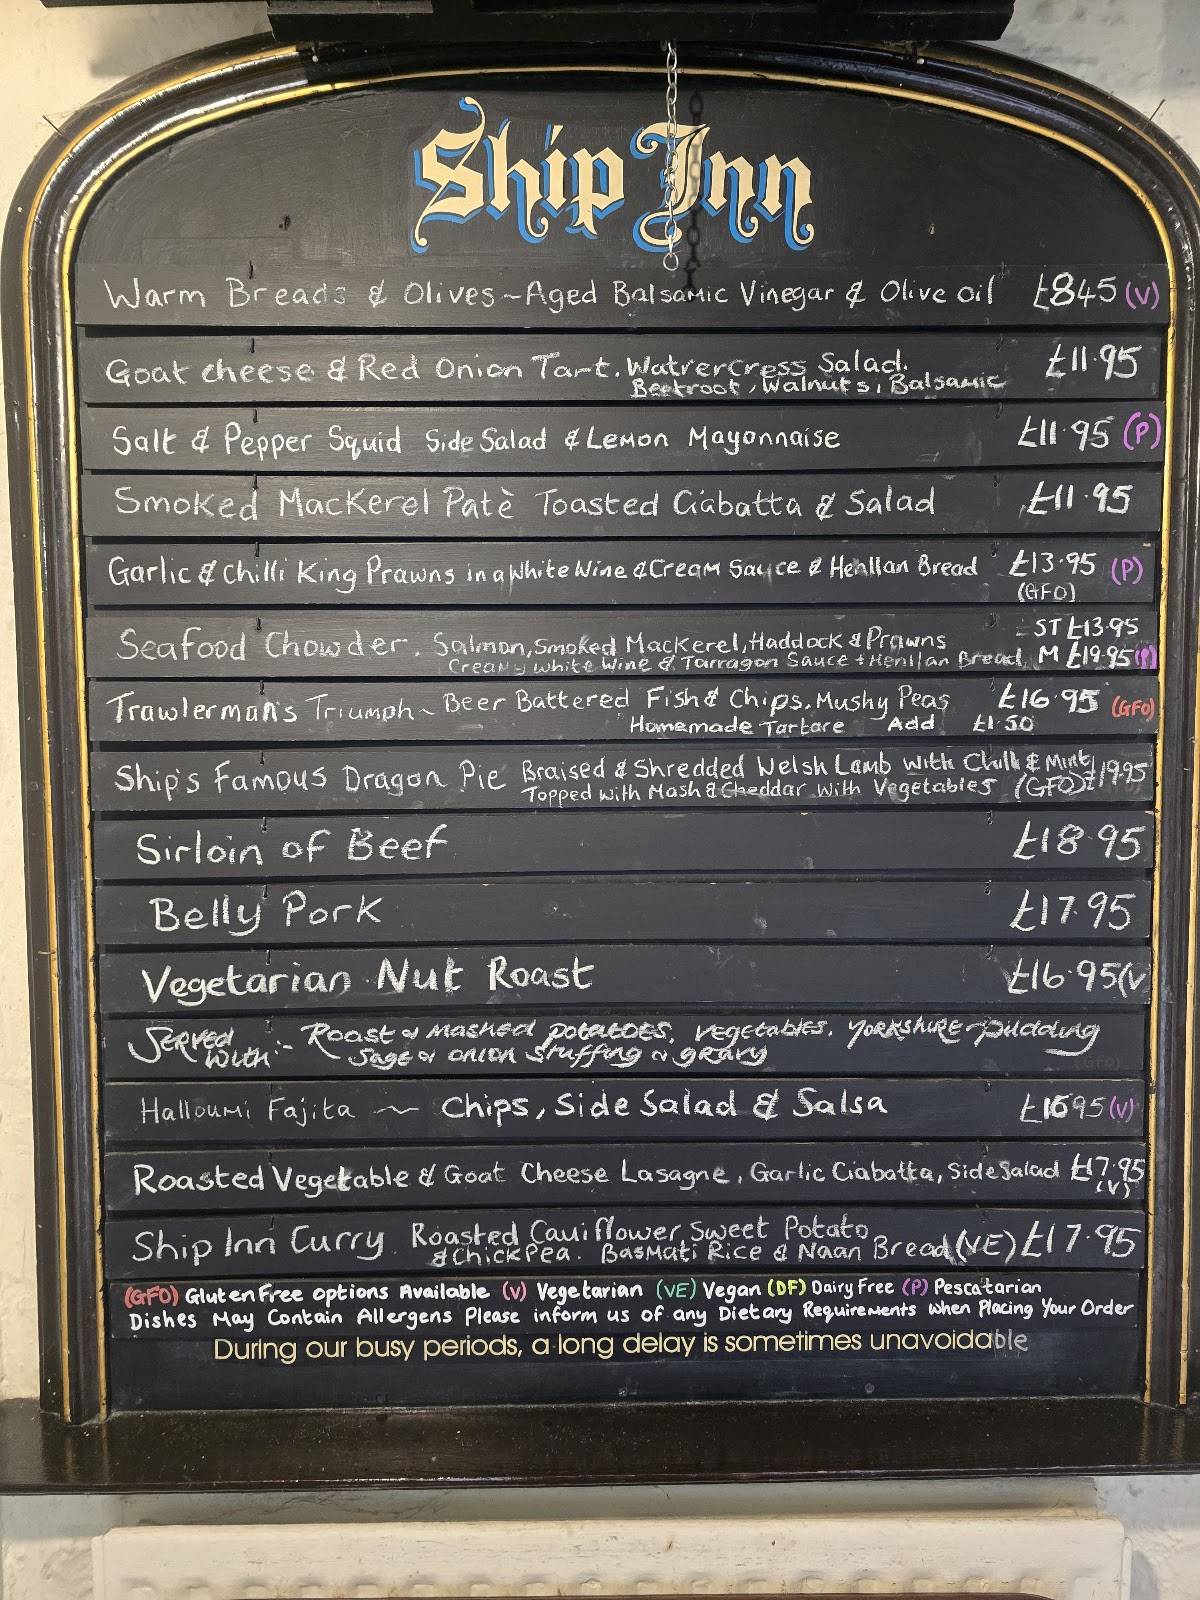 Ship Inn
Warm Breads & Olives ~ Aged Balsamic Vinegar & Olive oil £8.45 (V)
Goat cheese & Red Onion Tart. Watrercress Salad. £11.95
Beetroot, Walnuts, Balsamic
Salt & Pepper Squid Side Salad & Lemon Mayonnaise £11.95 (P)
Smoked Mackerel Patè Toasted Ciabatta & Salad £11.95
Garlic & Chilli King Prawns in a White Wine & Cream Sauce & Henllan Bread £13.95 (P)
(GFO)
Seafood Chowder. Salmon, Smoked Mackerel, Haddock & Prawns ST £13.95
Creamy White Wine & Tarragon Sauce + Henllan Bread M £19.95 (P)
Trawlerman's Triumph ~ Beer Battered Fish & Chips, Mushy Peas £16.95 (GFO)
Homemade Tartare Add £1.50
Ship's Famous Dragon Pie Braised & Shredded Welsh Lamb with Chilli & Mint £19.95
Topped with Mash & Cheddar with Vegetables (GFO)
Sirloin of Beef £18.95
Belly Pork £17.95
Vegetarian Nut Roast £16.95 (V
Served with :- Roast & mashed potatoes, vegetables, Yorkshire-pudding
Sage & onion stuffing & gravy
(GFO)
Halloumi Fajita ~ Chips, Side Salad & Salsa £16.95 (V)
Roasted Vegetable & Goat Cheese Lasagne, Garlic Ciabatta, Side Salad £17.95
(V)
Ship Inn Curry. Roasted Cauliflower, Sweet Potato
& ChickPea. Basmati Rice & Naan Bread (VE) £17.95
(GFO) Gluten Free options Available (V) Vegetarian (VE) Vegan (DF) Dairy Free (P) Pescatarian
Dishes May Contain Allergens Please inform us of any Dietary Requirements when Placing Your Order
During our busy periods, a long delay is sometimes unavoidable